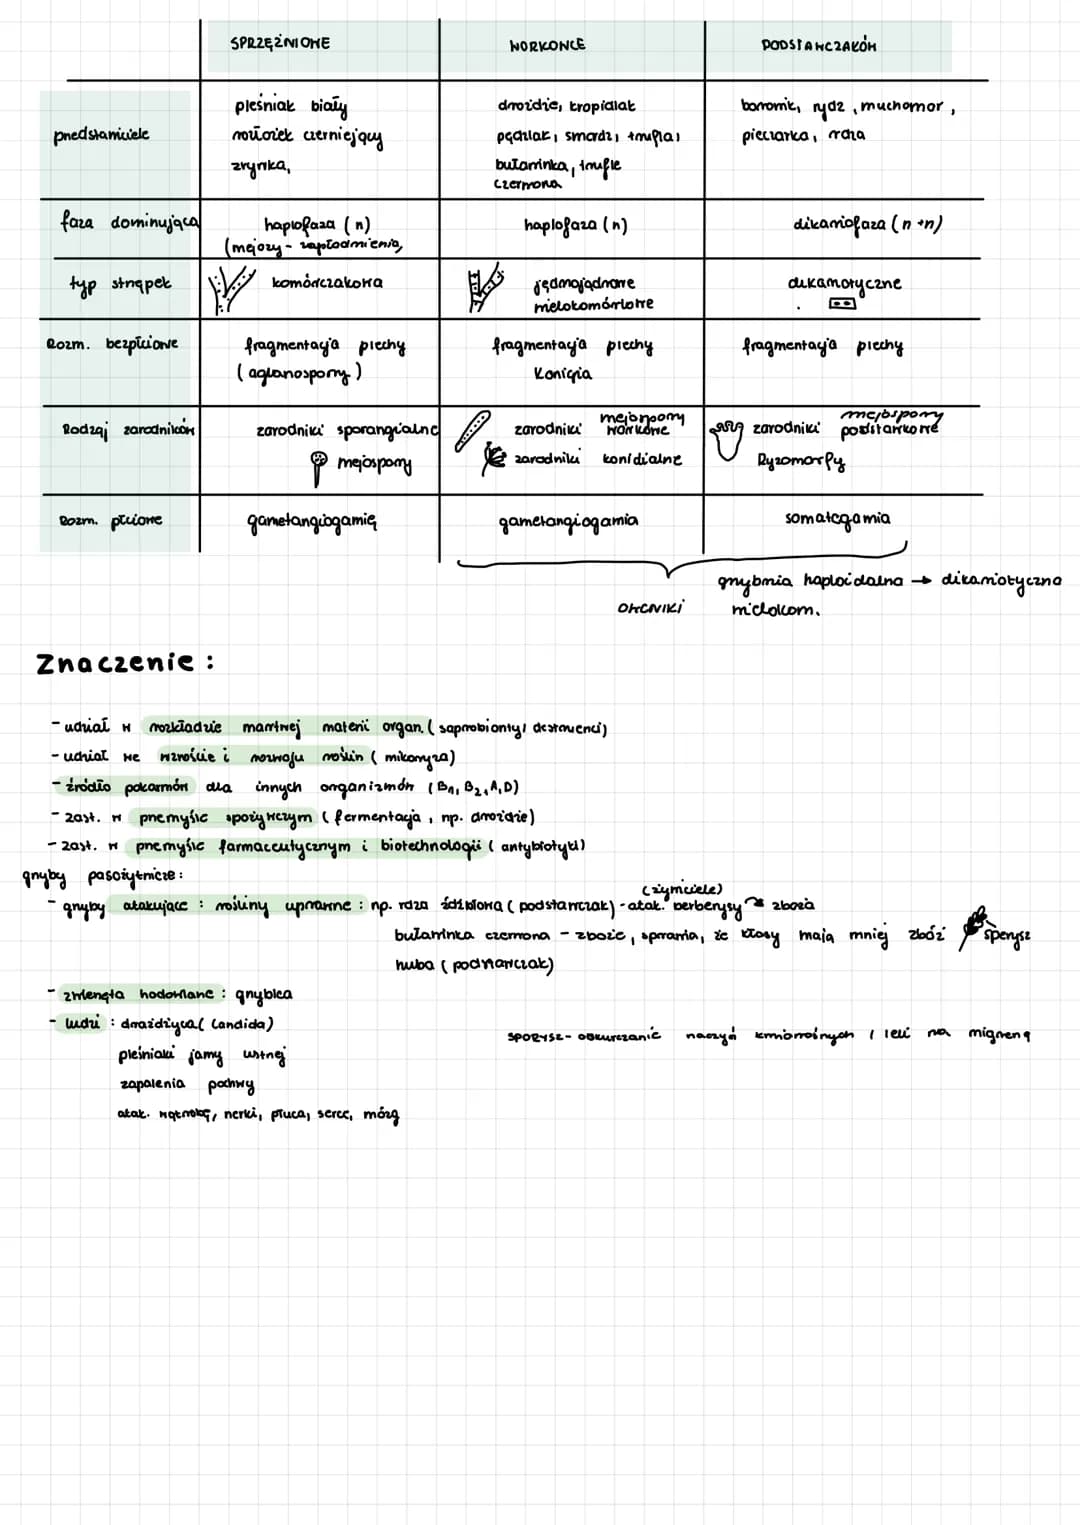 SPRZĘŻNIOWE WORKOWCE PODSTAWCZAKÓW
przedstawiciele
pleśniak biały
rozłożek czerniejący
zrywka,
drożdże, kropidlak
pędzlak, smardz, trufla,
buławinka, trufle
czerwona
borowik, rydz, muchomor,
pieczarka, rdza
faza dominująca
haplofaza (n)
(mejozy - zapłodmienia,
haplofaza (n)
dikariofaza (n+n)
typ strzępek
komórczakowa
jednojądrowe
wielokomórkowe
dikariotyczne
Rozm. bezpłciowe
fragmentacja plechy
(aglanospory)
fragmentacja plechy
Konidia
fragmentacja plechy
Rodzaj zarodników
zarodniki sporangialne
mejospory
zarodniki mejospory workowe
zarodniki konidialne
zarodniki mejospory podstawkowe
Ryzomorfy
Rozm. płciowe
gametangiogamię
gametangiogamia
somatogamia
OWCNIKI
grzybnia haploidalna → dikariotyczna
wielokom.
Znaczenie :
- udział w rozkładzie martwej materii organ. (saprobionty/ destruenci)
- udział we wzroście i rozwoju roślin (mikoryza)
- źródło pokarmów dla innych organizmów (B1, B2, A, D)
- zast. w przemyśle spożywczym (fermentacja, np. drożdże)
- zast. w przemyśle farmaceutycznym i biotechnologii (antybiotyki)
grzyby pasożytnicze:
- grzyby atakujące : rośliny uprawne : np. rdza źdźbłowa (podstawczak) - atak. berberysy (żywiciele) zboża
buławinka czerwona - zboże, sprawia, że kłosy mają mniej zbóż sperysz
huba (podstawczak)
- zwierzęta hodowlane : grzybica
- ludzi : drożdżyca (Candida)
pleśniaki jamy ustnej
zapalenia pochwy
atak. wątrobę, nerki, płuca, serce, mózg
SPORYSZ - obkurczanie naczyń krwionośnych / leki na migrenę